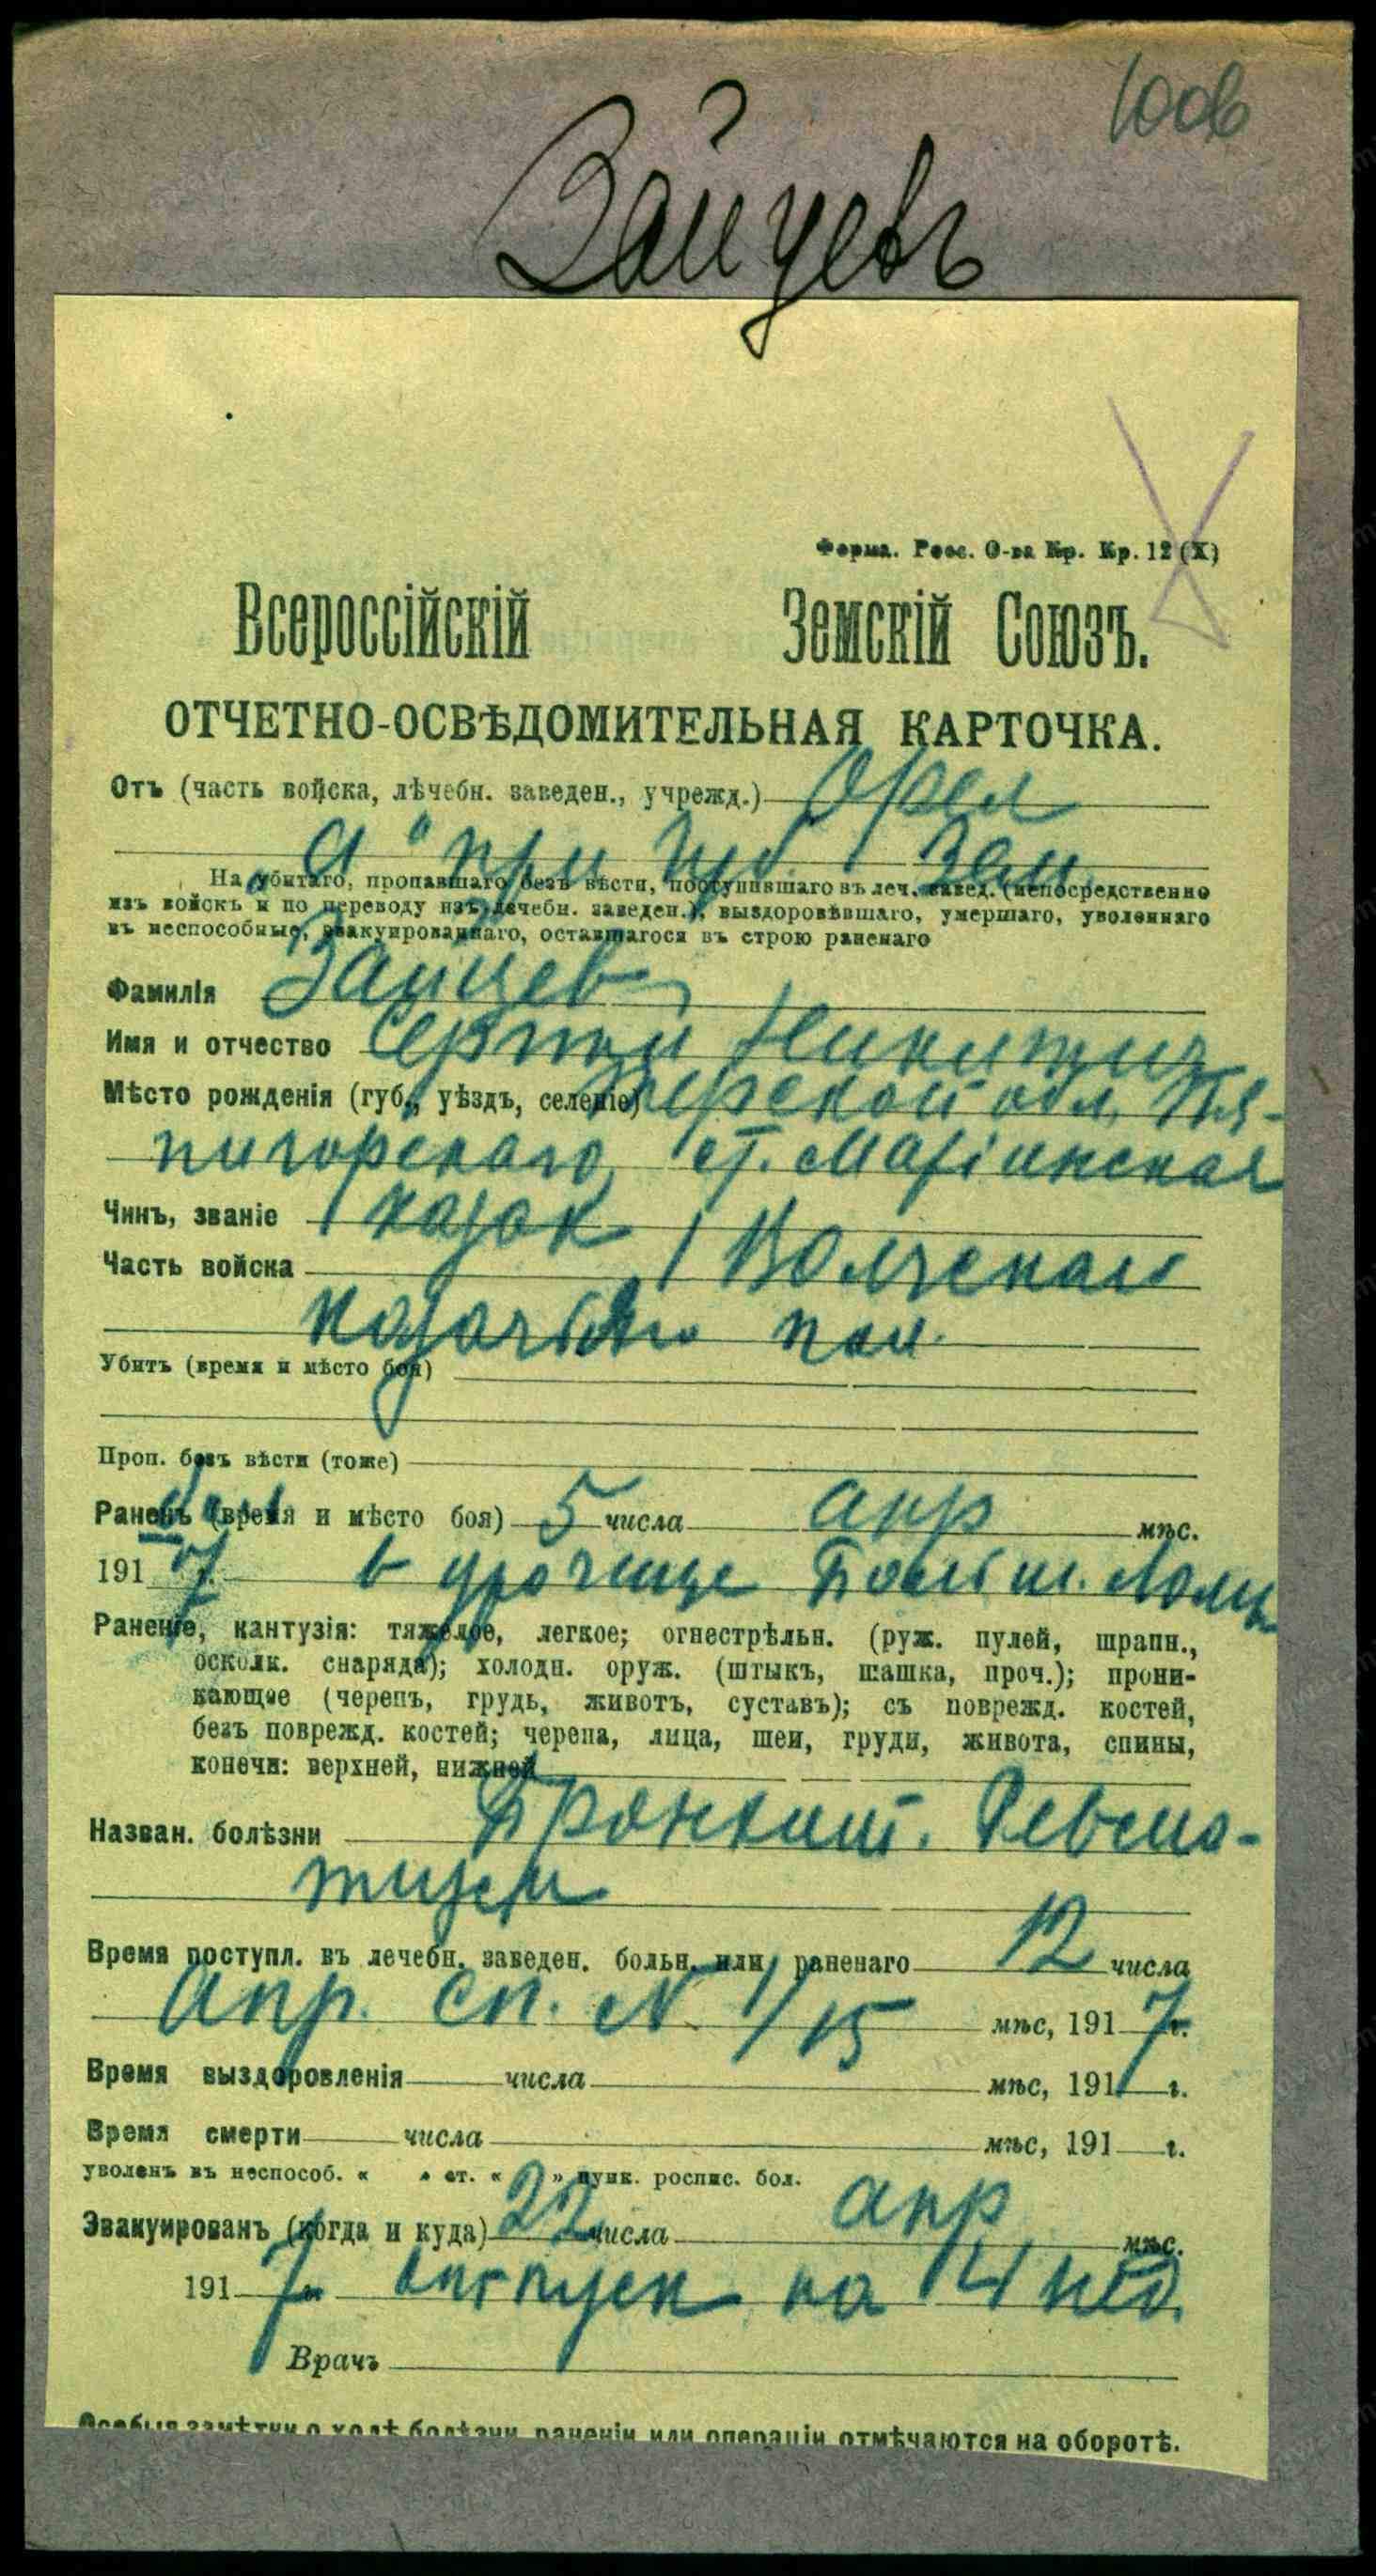 1006
Зайцевъ
Форма. Росс. О-ва Кр. Кр. 12 (X)
Всероссійскій Земскій Союзъ.
ОТЧЕТНО-ОСВѢДОМИТЕЛЬНАЯ КАРТОЧКА.
Отъ (часть войска, лѣчебн. заведен., учрежд.) Орел
при губ. Зем.
На убитаго, пропавшаго безъ вѣсти, поступившаго въ леч. завед. (непосредственно
изъ войскъ и по переводу изъ лечебн. заведен.), выздоровѣвшаго, умершаго, уволеннаго
въ неспособные, эвакуированнаго, оставшагося въ строю раненаго
Фамилія Зайцев
Имя и отчество Сергѣй Никитич
Мѣсто рожденія (губ., уѣздъ, селеніе) Терской обл. Пя-
тигорскаго ст. Маріинская
Чинъ, званіе казак
Часть войска 1 Волжскаго
казачьяго пол.
Убитъ (время и мѣсто боя)
Проп. безъ вѣсти (тоже)
Раненъ (время и мѣсто боя) 5 числа апр мѣс.
191 7 г. в урочище Больш.
Раненіе, кантузія: тяжелое, легкое; огнестрѣльн. (руж. пулей, шрапн.,
осколк. снаряда); холодн. оруж. (штыкъ, шашка, проч.); прони-
кающее (черепъ, грудь, животъ, суставъ); съ поврежд. костей,
безъ поврежд. костей; черепа, лица, шеи, груди, живота, спины,
конечн: верхней, нижней
Назван. болѣзни Бронхит. Ревма-
тизм
Время поступл. въ лечебн. заведен. больн. или раненаго 12 числа
Апр. сп. № 1/15 мѣс, 191 7 г.
Время выздоровленія числа мѣс, 191 г.
Время смерти числа мѣс, 191 г.
уволенъ въ неспособ. « » ст. « » пунк. роспис. бол.
Эвакуированъ (когда и куда) 22 числа апр мѣс.
191 7 г. в отпуск на нед.
Врачъ
Особыя замѣтки о ходѣ болѣзни раненіи или операціи отмѣчаются на оборотѣ.